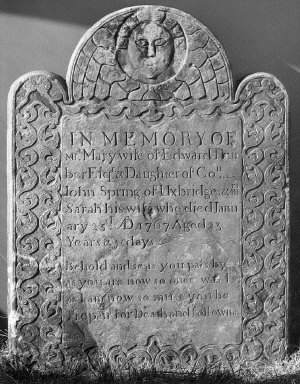 IN MEMORY OF
Mrs. Mary wife of Edward Thur
ber Esqr. & Daughter of Coll.
John Spring of Uxbridge, &
Sarah his wife who died Janu
ary 28th AD 1767 Aged 23
Years & days
Behold and se as you pass by
as you are now so once was I
as I am now so must you be
Prepair for Death and follow me